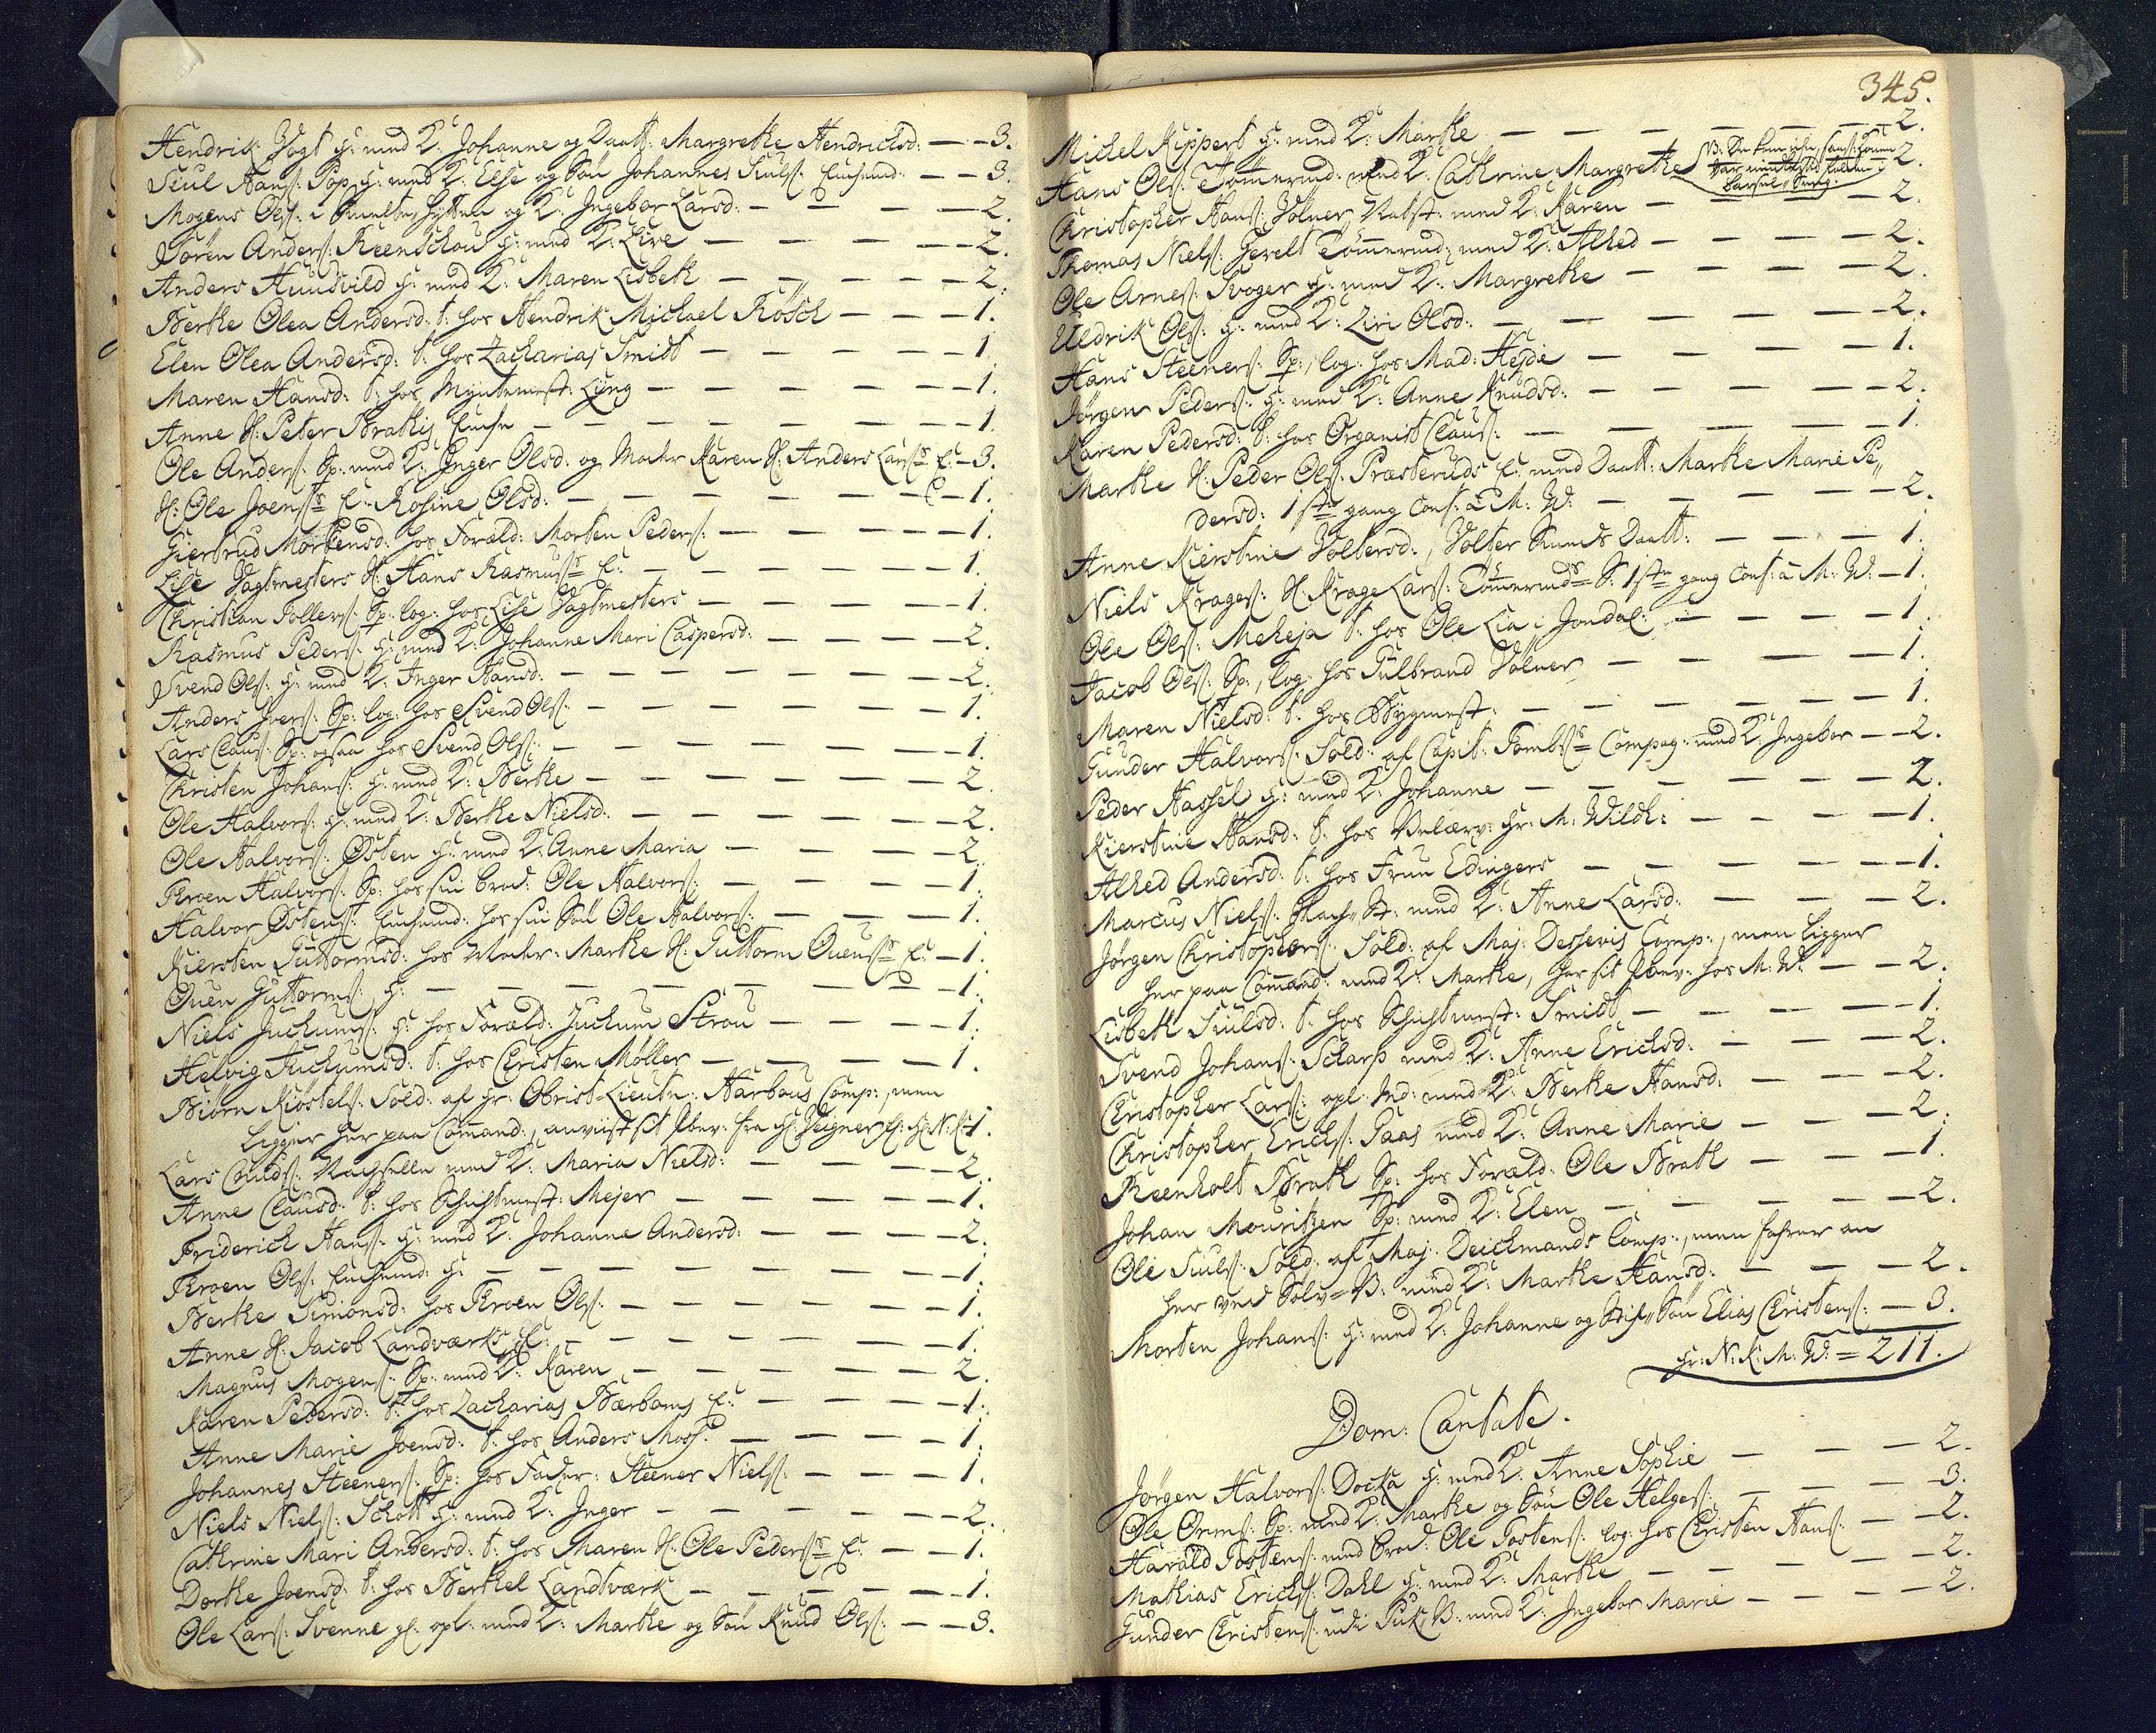 Hendrik Vogt H: med K: Johanne og Daatt: Margrethe Hendrichsd: — — 3.
Siul Hans: Sop, H: med K: Else og Søn Johannes Siuls: Enchmd: — — 3.
Mogens Ols: i Smelte hytten og K: Ingebor Larsd: — — — — 2.
Søren Anders: Reenschou H: med K: Live — — — — 2.
Anders Hundsvild H: med K: Maren Lisbeth — — — — 2.
Berthe Olea Andersd: T: hos Hendrik Michael Rösch — — — 1.
Elen Olea Andersd: T: hos Zacharias Smidt — — — — 1.
Maren Hansd: T: hos Myntemest: Lyng — — — — 1.
Anne S: Peter Brathis Enche — — — — 1.
Ole Anders: Sp: med K: Inger Olsd: og Moder Karen S: Anders Larss E: — 3.
S: Ole Joenss E: Rosine Olsd: — — — — 1.
Giertrud Mortensd: hos Foræld: Morten Peders: — — — 1.
Lise Vagtmesters S: Hans Rasmuss E: — — — 1.
Christian Tollevs: Sp: log: hos Lise Vagtmesters — — — 1.
Rasmus Peders: H: med K: Johanne Mari Caspersd: — — — 2.
Svend Ols: H: med K: Inger Hansd: — — — — 2.
Anders Ivers: Sp: log: hos Svend Ols: — — — — 1.
Lars Claus: Sp: ogsaa hos Svend Ols: — — — — 1.
Christen Johans: H: med K: Berthe — — — — 2.
Ole Halvors: H: med K: Berthe Nielsd: — — — — 2.
Ole Halvors: Østen H: med K: Anne Maria — — — — 2.
Throen Halvors: Sp: hos sin Brod: Ole Halvors: — — — 1.
Halvor Østens: Enchmd: hos sin Søn Ole Halvors: — — — 1.
Kiersten Guttormsd: hos Moder: Marthe S: Guttorm Ouenss E: — 1.
Ouen Guttorms: H: — — — — — 1.
Niels Juchums: H: hos Foræld: Juchum Strou — — — 1.
Helvig Juchumsd: T: hos Christen Møller — — — — 1.
Biørn Kiøstels: Sold: af Hr: Obrist-Lieutn: Harbous Comp:, men
ligger her paa Comand:, anviist sit Skriv: fra H: Veigner H: N: K: 1.
Lars Knuds: Vachselle med K: Maria Nielsd: — — — 2.
Anne Clausd: T: hos Schichtmest: Mejer — — — — 1.
Friderich Hans: H: med K: Johanne Andersd: — — — 2.
Throen Ols: Enchmd: H: — — — — 1.
Berthe Simonsd: hos Throen Ols: — — — — 1.
Anne S: Jacob Landværks E: — — — — 1.
Magnus Mogens: Sp: med K: Karen — — — — 2.
Karen Pedersd: T: hos Zacharias Bærboms E: — — — 1.
Anne Marie Joensd: T: hos Anders Moss: — — — — 1.
Johannes Steeners: Sp: hos Fader: Steener Niels: — — — 1.
Niels Niels: Schott H: med K: Inger — — — — 2.
Cathrine Mari Andersd: T: hos Maren S: Ole Pederss E: — — 1.
Dorthe Joensd: T: hos Berthel Landtværk — — — — 1.
Ole Lars: Svenne gl: opl: med K: Marthe og Søn Knud Ols: — — 3.
345.
Michel Rippert H: med K: Marthe — — — — 2.
Hans Ols: Tømerud: med K: Cathrine Margrethe 2.
Christopher Hans: Volner, Vatst: med K: Karen — — — 2.
Thomas Niels: Hevelt Tømerud: med K: Alhed — — — 2.
Ole Arnes: Svoger H: med K: Margrethe — — — 2.
Uldrik Ols: H: med K: Ziri Olsd: — — — — 2.
Hans Steeners: Sp:, log: hos Mad: Hejde — — — 1.
Jørgen Peders: H: med K: Anne Knudsd: — — — 2.
Karen Pedersd: T: hos Organist Claus: — — — — 1.
Marthe S: Peder Ols: Præsteruds E: med Daatt: Marthe Marie Pe„
dersd: 1ste gang Conf: à M: W: — — — 2.
Anne Kierstine Voltersd:, Volter Smeds Daatt: — — — 1.
Niels Krages: S: Krage Lars: Tømeruds S: 1ste gang Conf: à M: W: — 1.
Ole Ols: Meheja T: hos Ole Lia i Jondal: — — — 1.
Jacob Ols: Sp:, log: hos Gulbrand Volner — — — 1.
Maren Nielsd: T: hos Bygmest: — — — — 1.
Gunder Halvors: Sold: af Capit: Tombss Compag: med K: Ingebor — — 2.
Peder Hassel H: med K: Johanne — — — — 2.
Kierstine Hansd: T: hos Velærv: Hr: M: Wildh: — — — 1.
Alhed Andersd: T: hos Frue Edingers — — — — 1.
Marcus Niels: Poch„ St: med K: Anne Larsd: — — — 2.
Jørgen Christophers: Sold: af Maj: Dessevis Comp:, men ligger
her paa Comand: med K: Marthe, har sit Skriv: hos M: W: — — 2.
Lisbeth Siulsd: T: hos Schichtmest: Smidt — — — 1.
Svend Johans: Scharp med K: Anne Erichsd: — — — 2.
Christopher Lars: opl: Ind: med K: Berthe Hansd: — — — 2.
Christopher Erichs: Gaas med K: Anne Marie — — — 2.
Reenholt Brath Sp: hos Foræld: Ole Brath — — — 1.
Johan Mouritzen Sp: med K: Elen — — — — 2.
Ole Siuls: Sold: af Maj: Deichmands Comp:, men farer an
her ved Sølv=B: med K: Marthe Hansd: — — — 2.
Morten Johans: H: med K: Johanne og Stif„ Søn Elias Christens: — 3.
Hr: N: K: M: W: = 211.
Dom: Cantate.
Jørgen Halvors: Docka H: med K: Anne Sophie — — — 2.
Ole Orms: Sp: med K: Marthe og Søn Ole Helges: — — — 3.
Harald Tostens: med Brod: Ole Tostens: log: hos Christen Hans: — — 2.
Mathias Erichs: Dahl H: med K: Marthe — — — 2.
Gunder Christens: ude Puk: B: med K: Ingebor Marie — — — 2.